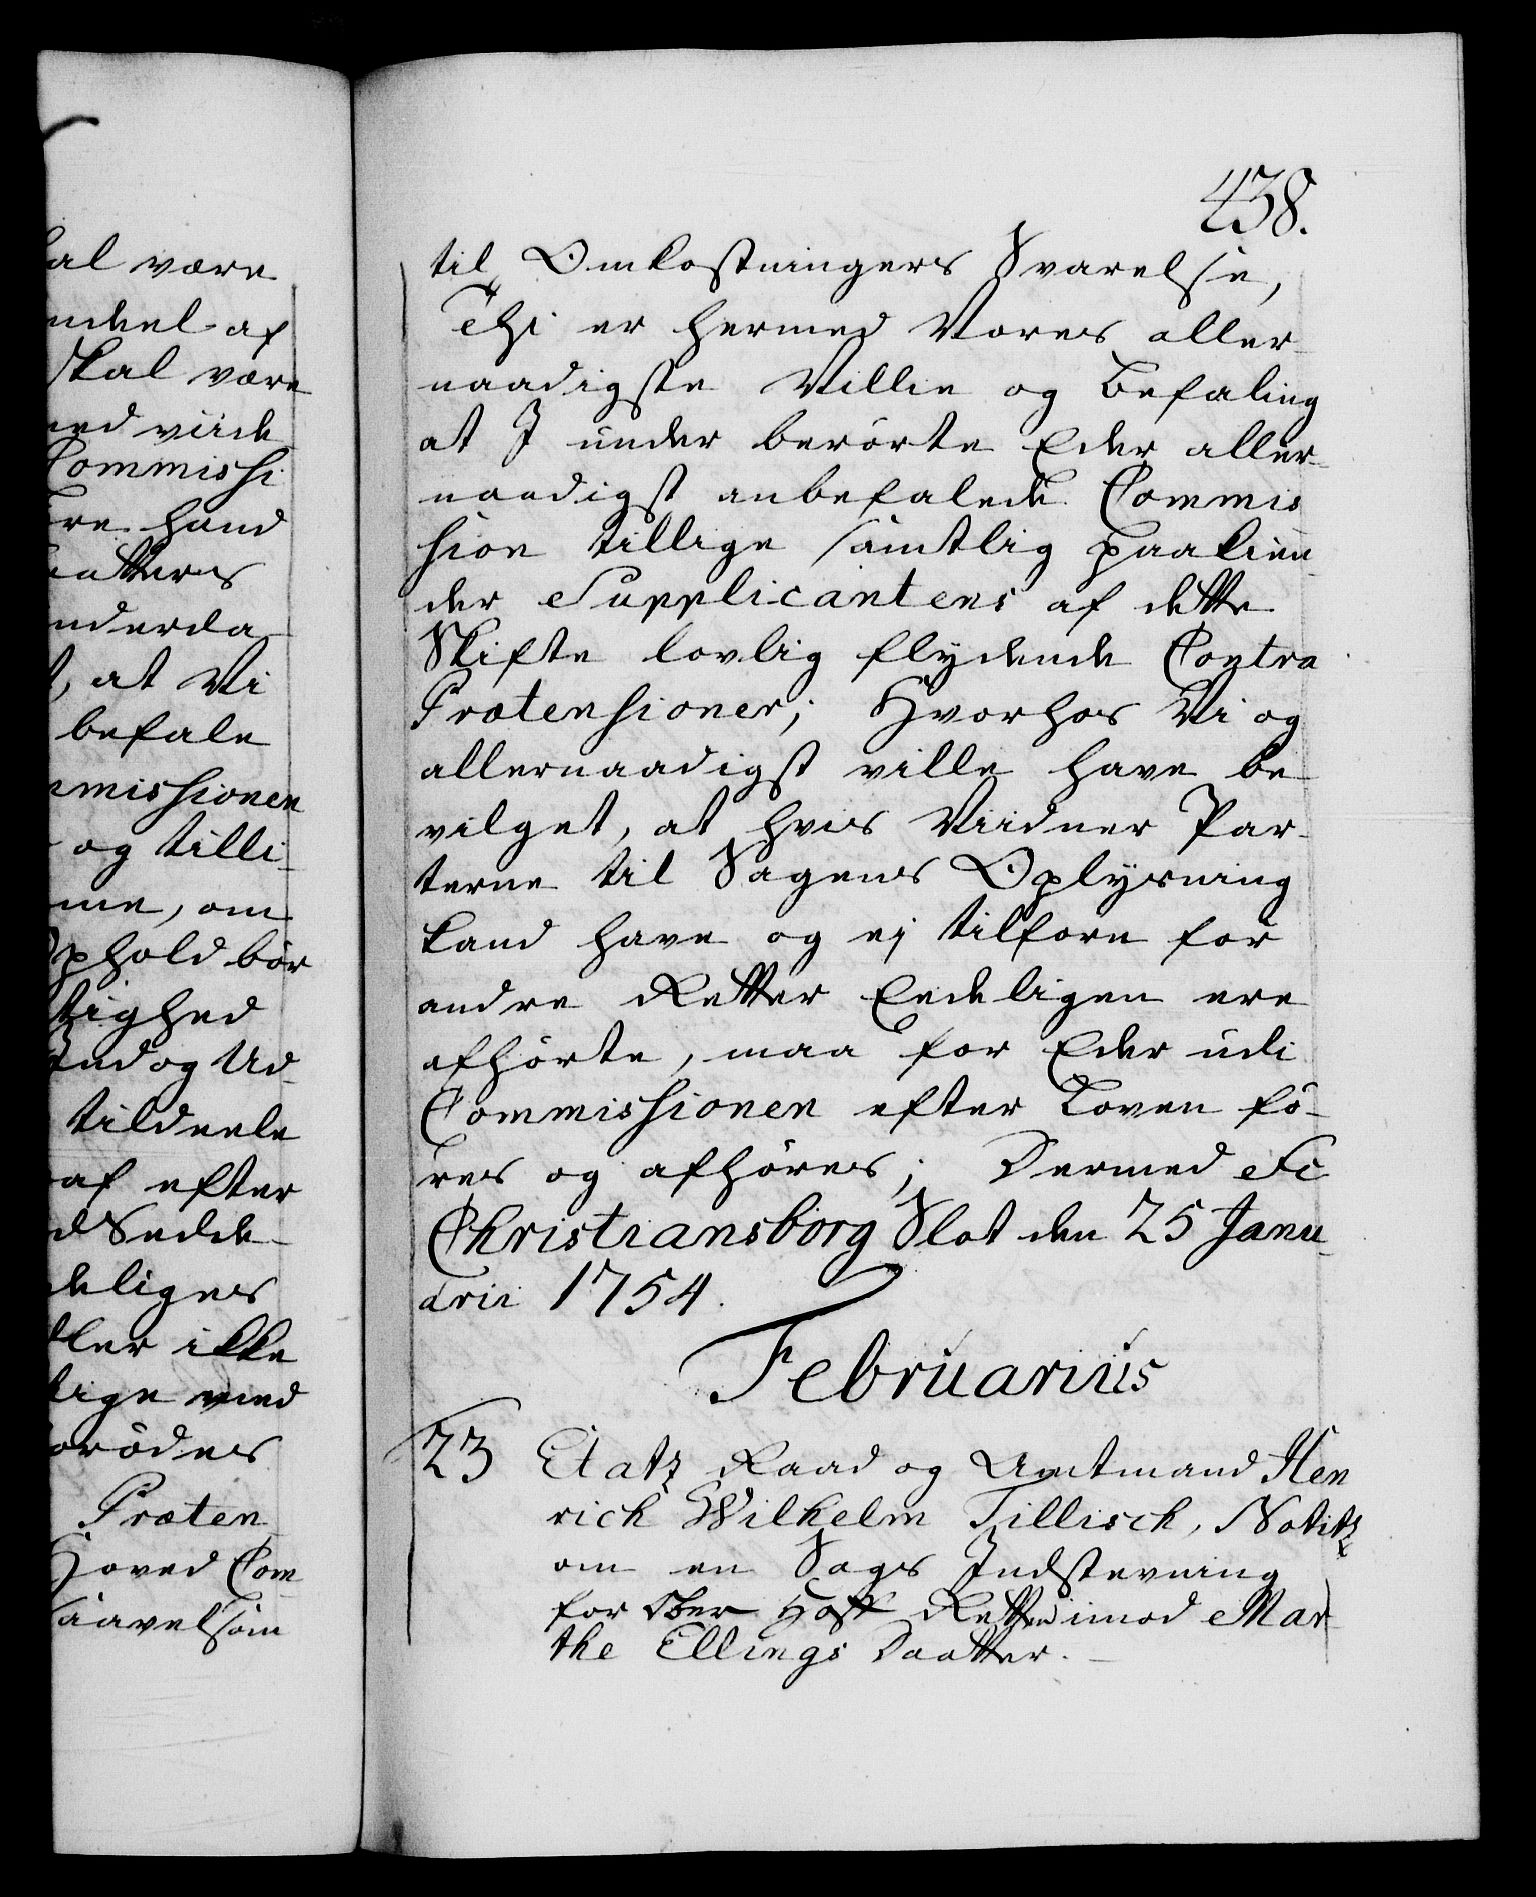 al være
ndeel af
skal være
ned viide
Commissi
re haand
satters
nderda
t, at Vi
befale
mmissionen
og tilli-
me, om
Ophold bør
tighed
Ind og Ud-
tildeele
af efter
d Sedde-
deliges
ller ikke
lige med
orødnes
Præten
Hoved Com
saavelsom
438.
til Omkostningers Svarelse,
Thi er hermed Vores aller-
naadigste Villie og Befaling
at I under berørte Eder aller-
naadigst anbefalede Commis
sion tillige samtlig paakien-
der Supplicantens af dette
Skifte lovlig flydende Contra
Prætensioner; Hvorhos Vi og
allernaadigst ville have be-
vilget, at hvis Viidner Par-
terne til Sagens Oplysning
kand have og ej tilforn for
andre Retter Eedeligen ere
afhørte, maa for Eder udi
Commissionen efter Loven fø-
res og afhøres; Dermed Sc
Christiansborg Slot den 25 Janu-
arii 1754.
Februarius
23 Etatz Raad og Amtmand Hen
rich Wilhelm Tillisch, Notitz
om en Sags Indstevning
for Ober Hoff Retten imod Mar-
the Ellings Daatter.